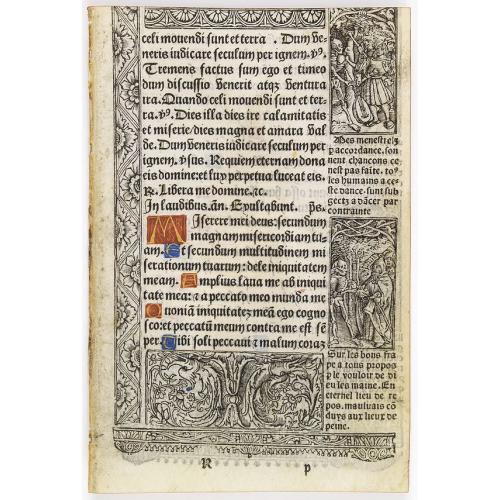 celi mouendi sunt et terra . Dum ve-
neris iudicare seculum per ignem. v9.
Tremens factus sum ego et timeo
dum discussio venerit atqz ventura
ira. Quando celi mouendi sunt et ter-
ra. v9. Dies illa dies ire calamitatis
et miserie/dies magna et amara val
de. Dum veneris iudicare seculum per
ignem. v̄sus. Requiem eternam dona
eis domine:et lux perpetua luceat eis.
R. Libera me domine. ⁊c.
In laudibus. añ. Exultabunt. p̄s.
Miserere mei deus: secundum
magnam misericordiam tu-
am. Et secundum multitudinem mi
serationum tuarum: dele iniquitatem
meam. Amplius laua me ab iniqui
tate mea: ⁊ a peccato meo munda me
Quoniā iniquitatez meā ego cogno
sco:et peccatū meum contra me est sē
per. Tibi soli peccaui ⁊ malum coraz
Mes menestrelz
p accordance. son
nent chancons ce
nest pas faite. to9
les humains a ce-
ste dance. sunt sub
gectz a dācer par
contrainte
Sur les bous fra
pe a tous propos
p le vouloir de di
eu les maine. En
eternel lieu de re
pos. mauluais cō
duys aux lieux de
peine.
R p